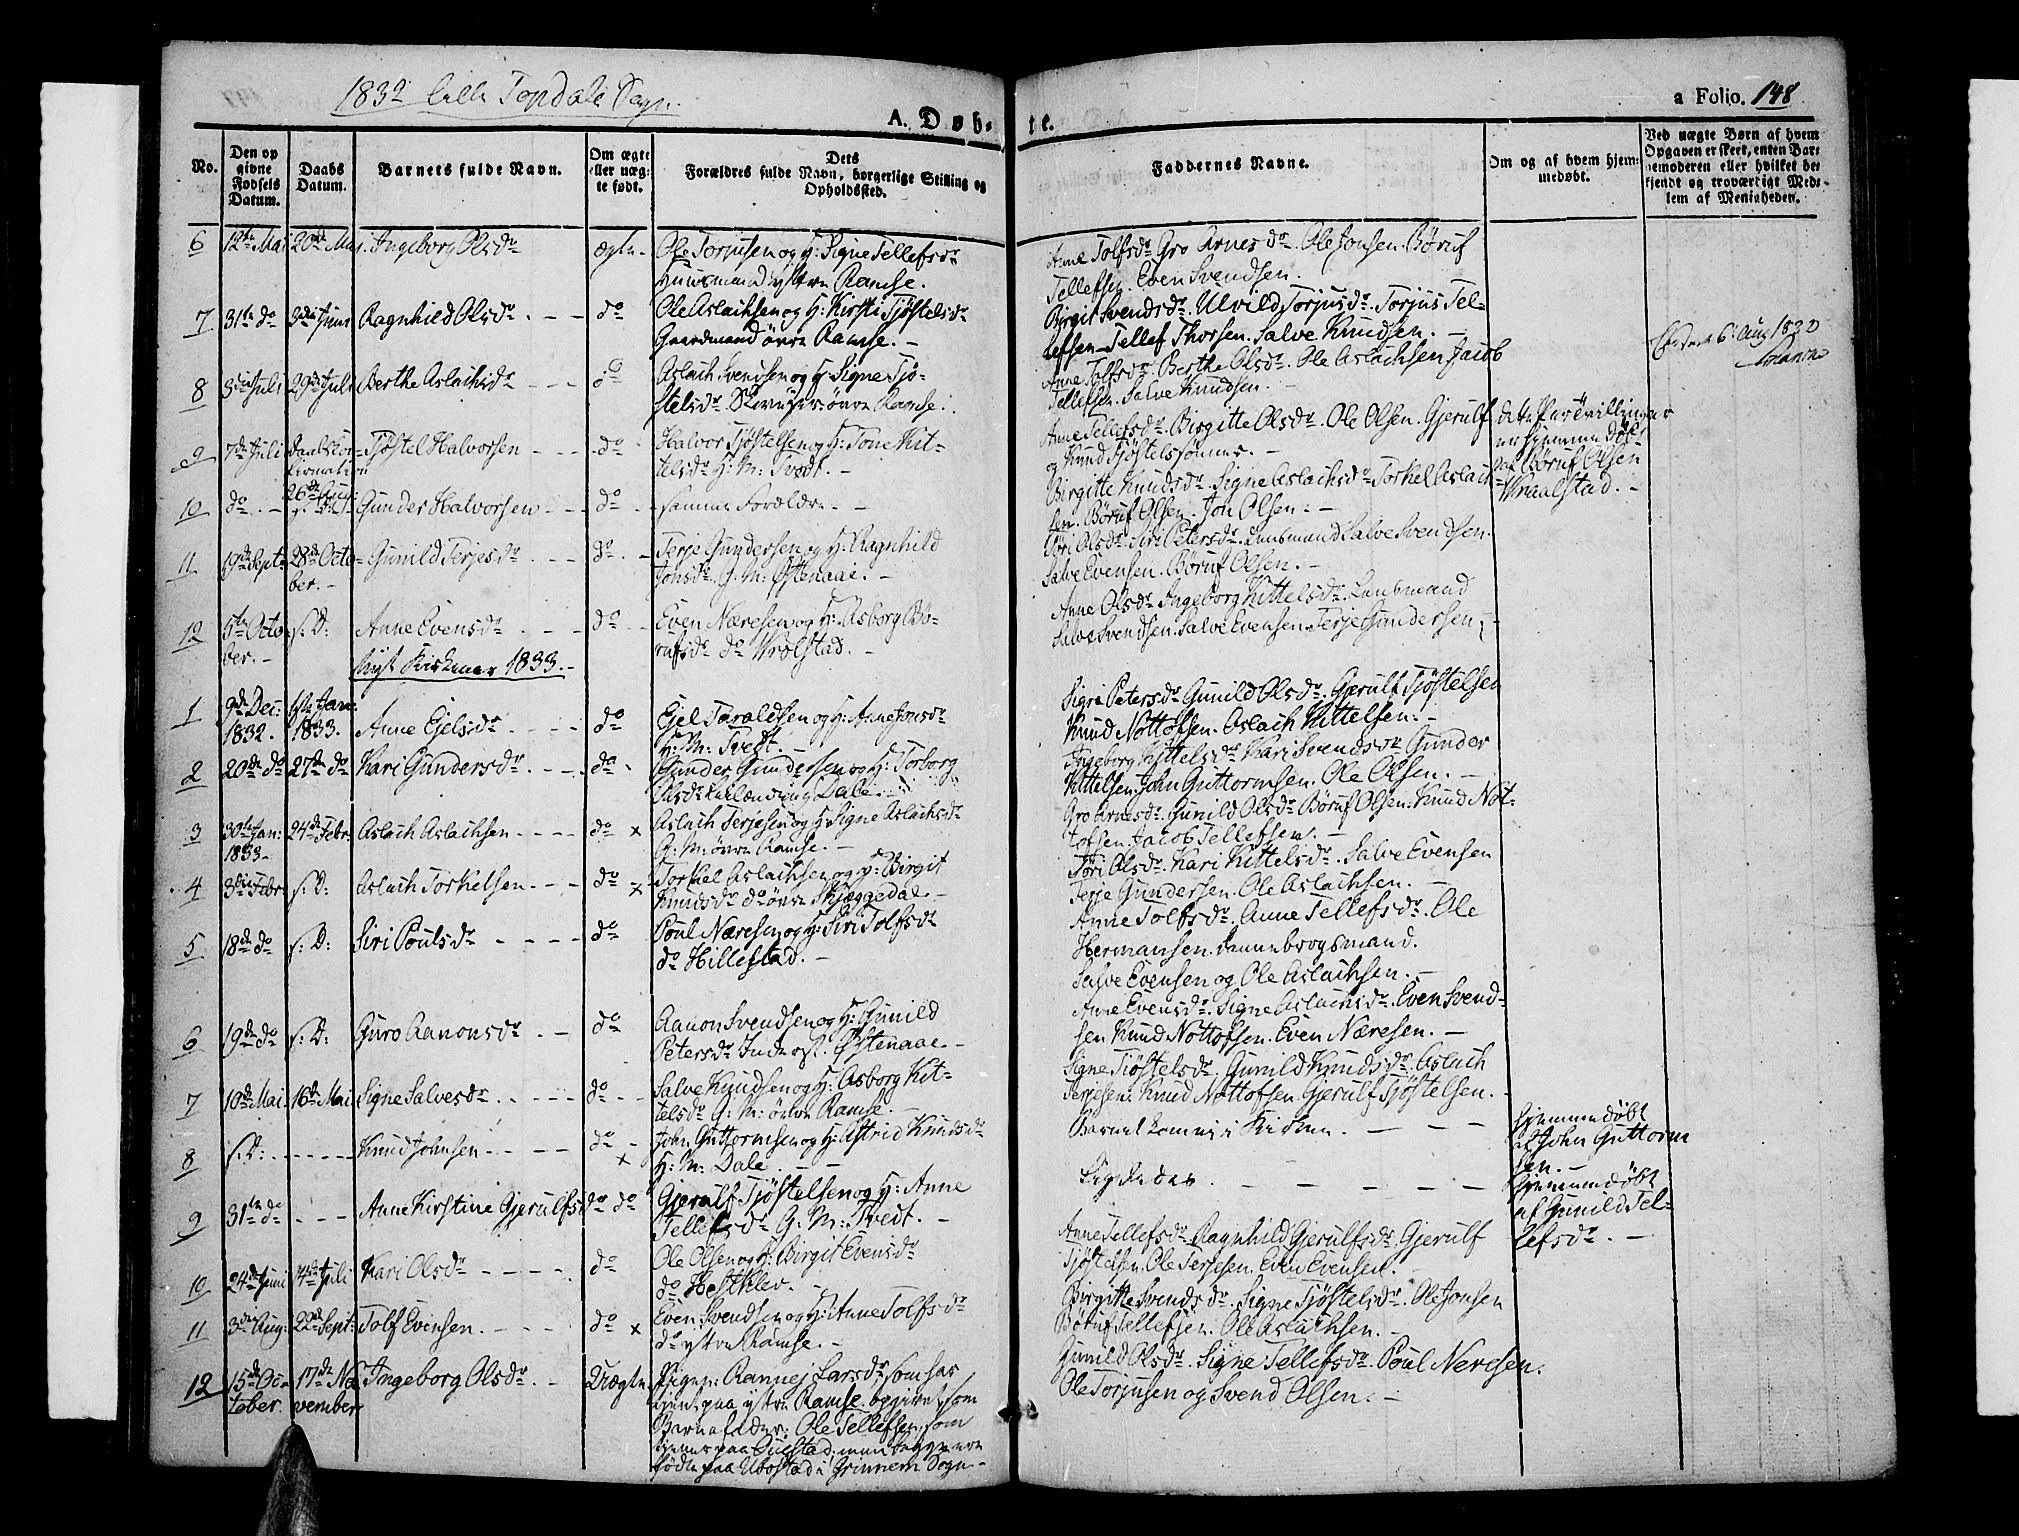 1832 Lille Topdals Sogn.
A. Døb-
te.
a Folio. 148
No.
Den op
givne
Fødsels
Datum.
Daabs
Datum.
Barnets fulde Navn.
Om ægte
eller uæg-
te født.
Dets
Forældres fulde Navn, borgerlige Stilling og
Opholdssted.
Faddernes Navne.
Om og af hvem hjem-
medøbt.
Ved uægte Børn af hvem
Opgaven er skeet, enten Bar-
nemoderen eller hvilket be-
kjendt og troværdigt Med-
lem af Menigheden.
6 12te Mai 20de Mai Ingeborg Olsdr ægte - Ole Torjusen og H: Signe Tellefsdr
Huusmand ystre Ramse.
Anne Tolfsdr Gro Arnesdr. Ole Jonsen. Børuf
Tellefsen. Even Svendsen.
7 31te do 3die Juni Ragnhild Olsdr do Ole Aslachsen og H: Kirsti Tjøstelsdr
Gaardmand övre Ramse. -
Birgit Svendsdr. Ulvild Torjusdr. Torjus Tel-
lefsen - Tellef Thorsen. Salve Knudsen. -
8 3die Juli 29de Juli Berthe Aslachsdr do Aslach Svendsen og H: Signe Tjø-
stelsdr. övre Ramse.
Anne Tolfsdr. Berthe Olsdr. Ole Aslachsen Jacob
Tellefsen. Salve Knudsen.
6 Aug 1832
9 7de Juli Tjøstel Halvorsen do Halvor Tjøstelsen og H: Tone Kit-
telsdr H: M: Tvedt. -
Anne Tellefsdr. Birgitte Olsdr. Ole Olsen. Gjerulf
og Knud Tjøstelsønner. -
dette Par Tvillinger
er hjemmedøbt
af Børuf Olsen
Wraalstad. -
10 do 26de Aug: Gunder Halvorsen do samme Forældre. -
Birgitte Knudsdr. Signe Aslachsdr Torkel Aslach-
sen. Børuf Olsen. Jon Olsen. -
11 19de Sept: 28de Octo-
ber. - Gunild Terjesdr do Terje Gundersen og H: Ragnhild
Jonsdr. G: M: Østenaae. -
Töri Olsdr. Siri Petersdr. Lensmand Salve Svendsen.
Salve Evensen. Børuf Olsen. -
12 5te Octo-
ber. - s: D: Anne Evensdr do Even Næresen og H: Asborg Bø-
rufsdr do Wrolstad. -
Anne Olsdr. Ingeborg Kittelsdr. Lensmand
Salve Svendsen. Salve Evensen. Terje Gundersen. -
Nyt Kirkeaar 1833. -
1 9de Dec:
1832. 6te Jan:
1833. Anne Ejelsdr do Ejel Taraldsen og H: Anne Jonsdr
H: M: Tvedt. -
Sigri Petersdr Gunild Olsdr. Gjerulf Tjøstelsen
Knud Nottofsen. Aslach Kittelsen. -
2 20de do 27de do Kari Gundersdr do Gunder Gundersen og H: Torborg
Olsdr Dale. -
Ingeborg Kittelsdr Kari Svendsdr Gunder
Kittelsen. John Guttormsen. Ole Olsen. -
3 30te Jan:
1833- 24de Febr: Aslach Aslachsen do x Aslach Terjesen og H: Signe Aslachsdr
G: M: övre Ramse. -
Gro Arnesdr. Gunild Olsdr Børuf Olsen. Knud Not-
tofsen. Jacob Tellefsen. -
4 3die Febr: s: D: Aslach Torkelsen do x Torkel Aslachsen og H: Birgit
Knudsdr do övre Skjæggedal. -
Töri Olsdr. Kari Kittelsdr. Salve Evensen
Terje Gundersen. Ole Aslachsen. -
5 18de do s: D: Siri Poulsdr do Poul Næresen og H: Siri Tolfsdr
do Hillestad. -
Anne Tolfsdr. Anne Tellefsdr. Ole
Hermansen. Dannebrogsmand.
Salve Evensen og Ole Aslachsen. -
6 19de do s: D: Guro Aanonsdr do Aanon Svendsen og H: Gunild
Petersdr Østenaae. -
Anne Evensdr. Signe Aslachsdr. Even Svend-
sen Knud Nottofsen. Even Næresen. -
7 10de Mai 16de Mai Signe Salvesdr do Salve Knudsen og H: Asborg Kit-
telsdr G: M: övre Ramse. -
Signe Tjøstelsdr. Gunild Knudsdr. Aslach
Terjesen. Knud Nottofsen. Gjerulf Tjøstelsen. -
8 s: D: Knud Johnsen do x John Guttormsen og H: Astrid Knudsdr
H: M: Dale. -
Barnet kom ei i Kirken.
hjemmedøbt
af John Guttorm-
sen. -
9 31te do Anne Kirstine Gjerulfsdr do Gjerulf Tjøstelsen og H: Anne
Tellefsdr G: M: Tvedt. -
Ligeledes
hjemmedøbt
af Gunild Tel-
lefsdr. -
10 24de Juni 14de Juli Kari Olsdr do Ole Olsen og H: Birgit Evensdr
do Hesthlev. -
Anne Tellefsdr Ragnhild Gjerulfsdr Gjerulf
Tjøstelsen. Ole Terjesen. Even Evensen.
11 3die Aug: 22de Sept: Tolf Evensen do x Even Svendsen og H: Anne Tolfsdr
do ystre Ramse. -
Birgitte Svendsdr. Signe Tjøstelsdr. Ole Jonsen
Børuf Tellefsen. Ole Aslachsen. -
12 15de Oc-
tober. 17de No-
vember Ingeborg Olsdr. - Uægte Pigen: Rannej Larsdr, som har
tjent paa ystre Ramse. opgivet som
Barnefader: Ole Tellefsen, som
tjener paa men begge ere
født paa Ubostad i Sogn. -
Gunild Olsdr. Signe Tellefsdr. Poul Neresen.
Ole Torjusen og Svend Olsen. -